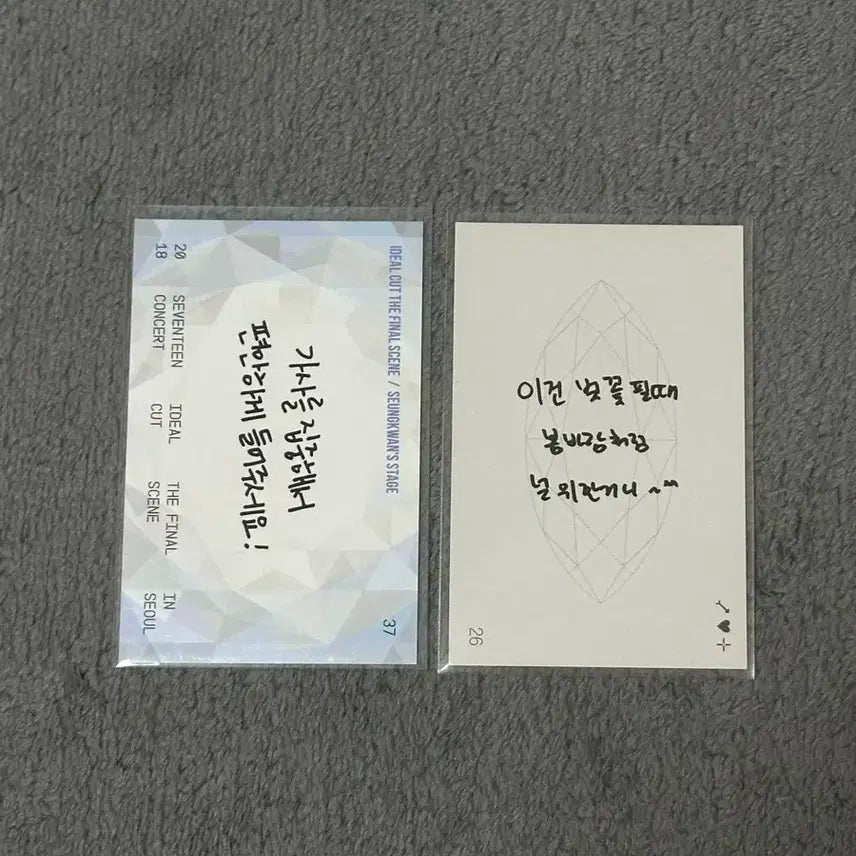 IDEAL CUT THE FINAL SCENE / SEUNGKWAN'S STAGE
가사를 집중해서
편안하게 들어주세요!
20 SEVENTEEN IDEAL THE FINAL IN
18 CONCERT CUT SCENE SEOUL
37
이건 벚꽃필때
봄바람처럼
널 위한거니 ~
26